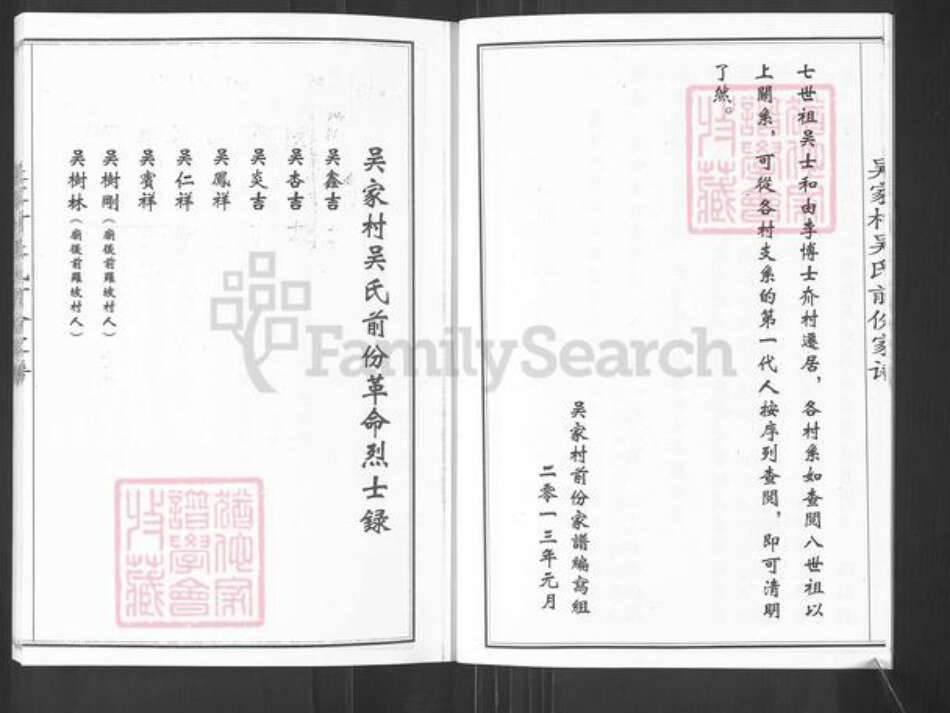 吴家村吴氏前份家谱
七世祖吴士和由李博士介村遷居，各村系如查閱八世祖以
上關系，可從各村支系的第一代人按序列查閱，即可清明
了然。
吴家村前份家譜編寫組
二零一三年元月
猶他家
譜學會
收藏
吴家村吴氏前份革命烈士録
吴鑫吉
吴杏吉
吴炎吉
吴鳳祥
吴仁祥
吴賓祥
吴樹剛（廟後前羅坡村人）
吴樹林（廟後前羅坡村人）
猶他家
譜學會
收藏
FamilySearch